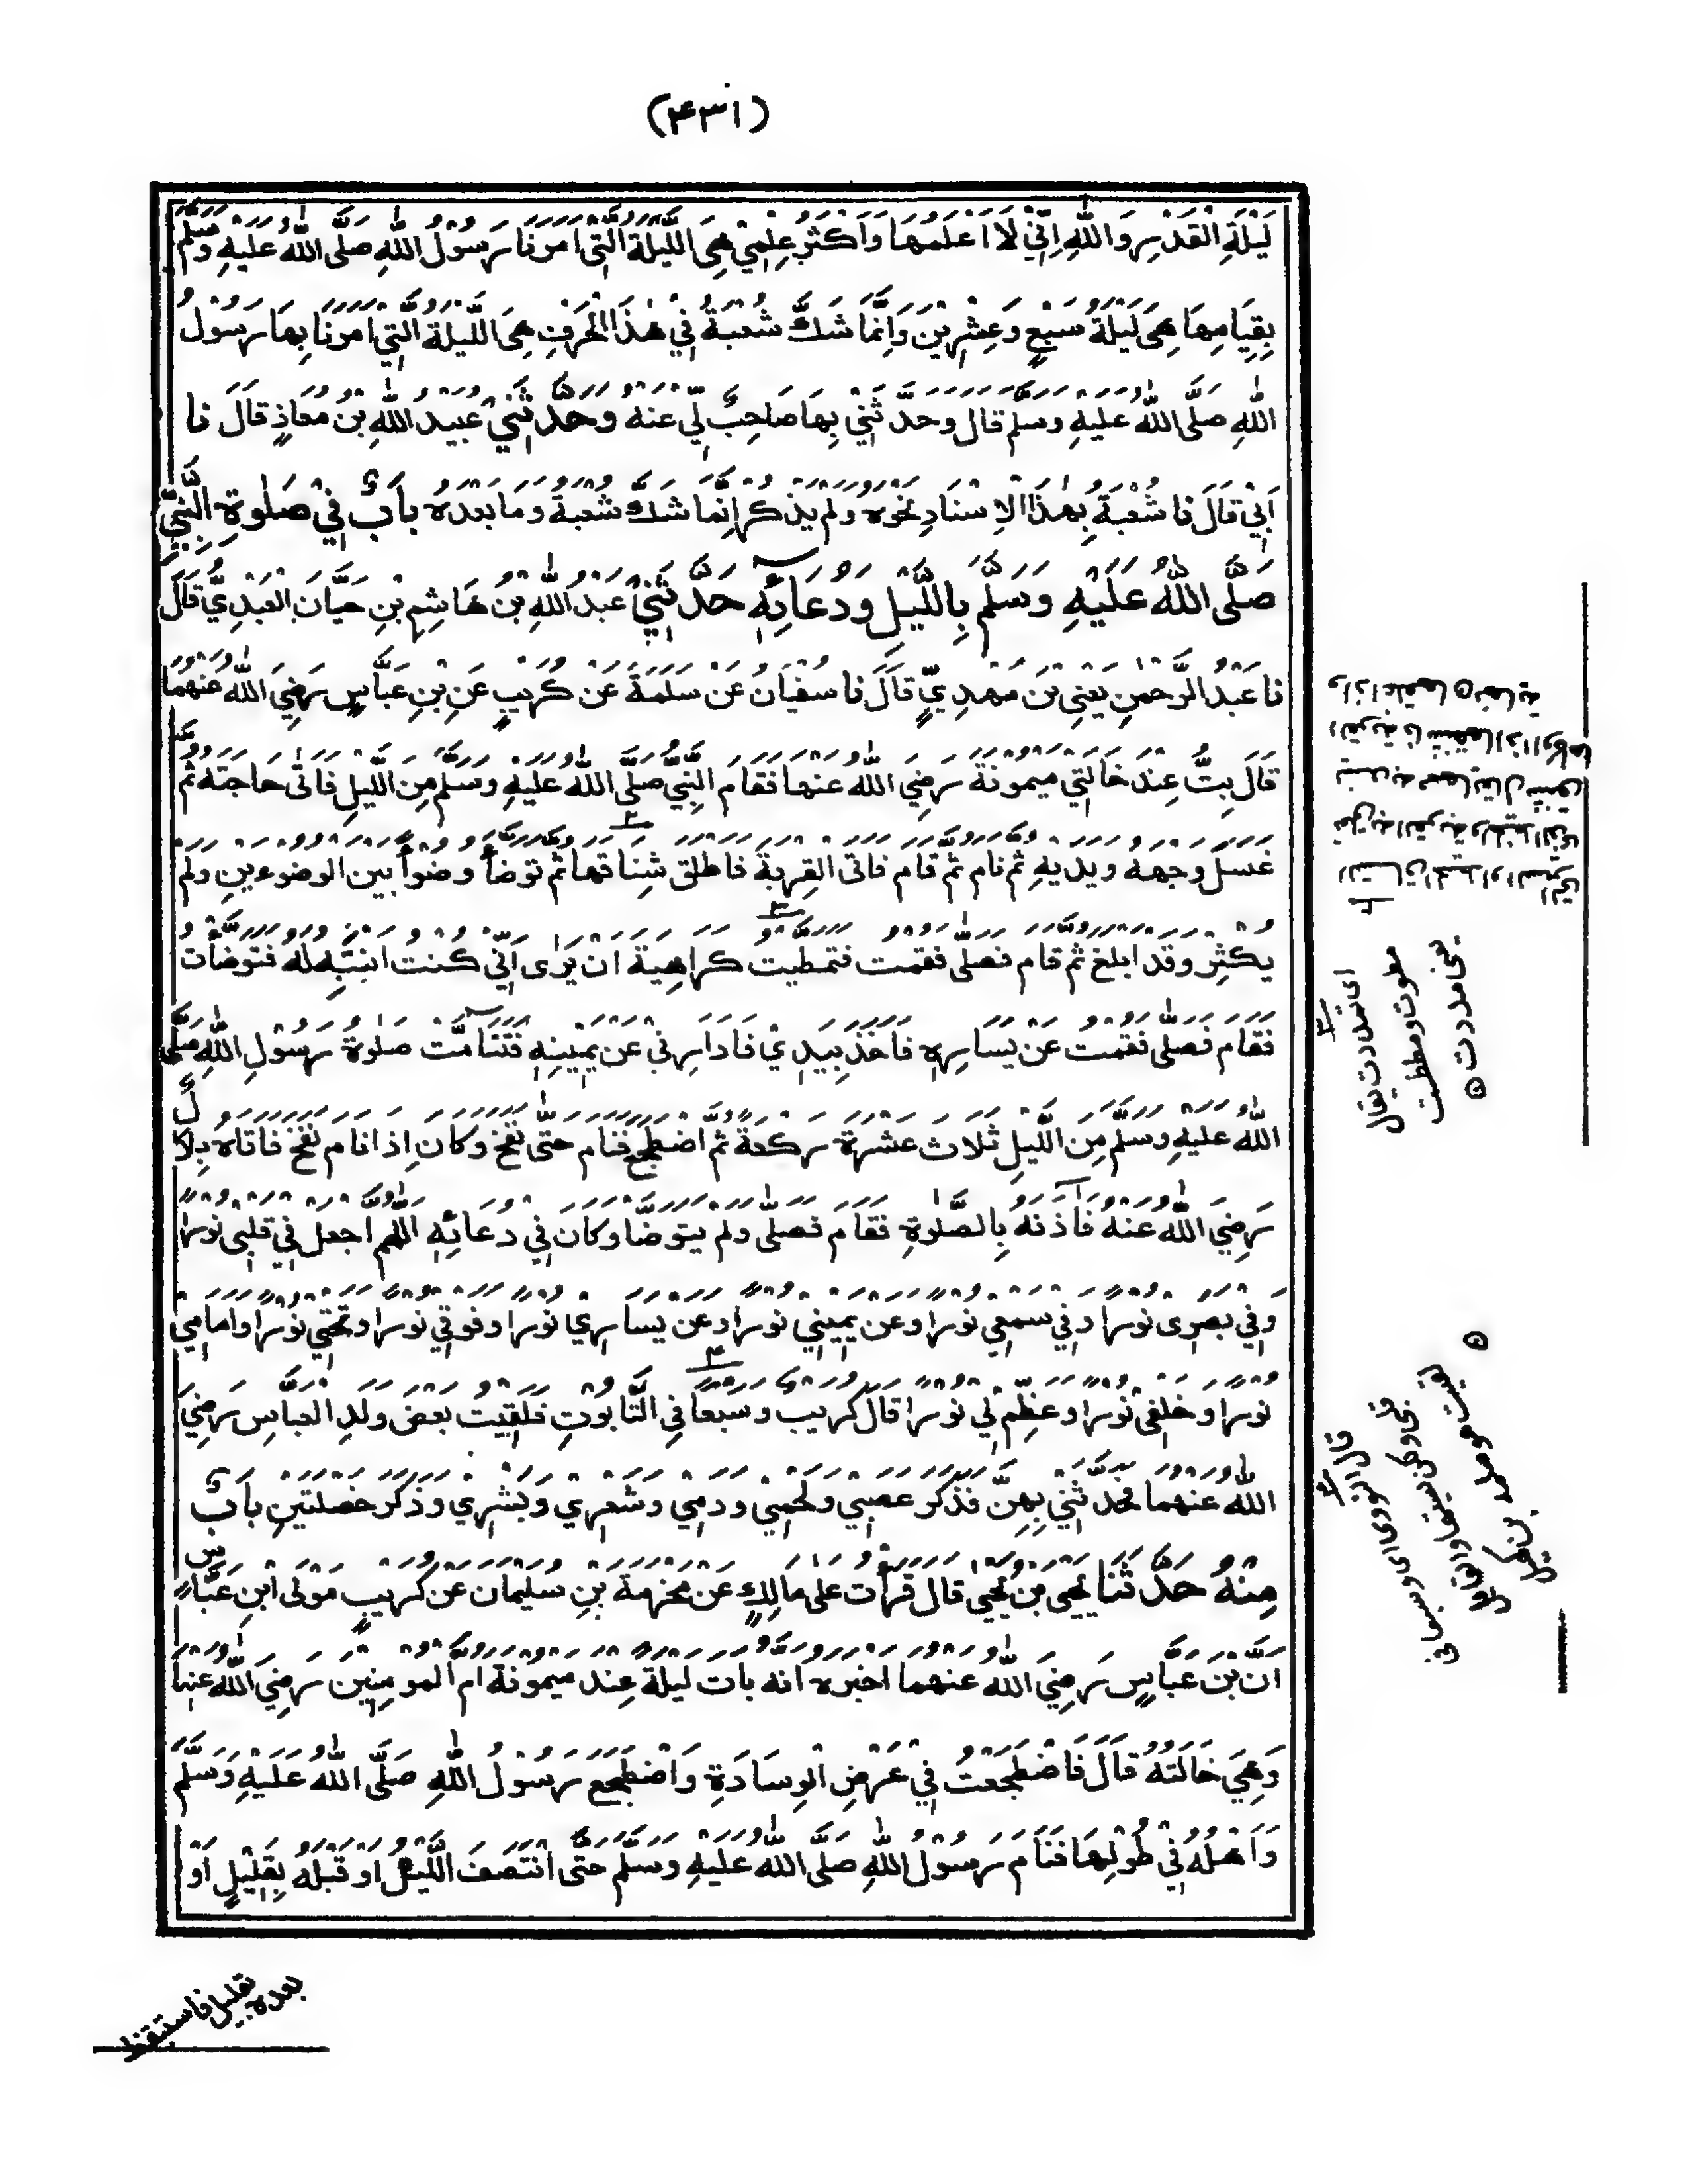 (۴۳۱)
لَيْلَةِ الْقَدْرِ وَاللّٰهِ اِنِّيْ لَا اَعْلَمُهَا وَاَكْثَرُ عِلْمِيْ هِيَ اللَّيْلَةُ الَّتِيْ اَمَرَنَا رَسُوْلُ اللّٰهِ صَلَّى اللّٰهُ عَلَيْهِ وَسَلَّمَ
بِقِيَامِهَا هِيَ لَيْلَةُ سَبْعٍ وَعِشْرِيْنَ وَاِنَّمَا شَكَّ شُعْبَةُ فِيْ هٰذَا الْحَرْفِ هِيَ اللَّيْلَةُ الَّتِيْ اَمَرَنَا بِهَا رَسُوْلُ
اللّٰهِ صَلَّى اللّٰهُ عَلَيْهِ وَسَلَّمَ قَالَ وَحَدَّثَنِيْ بِهَا صَاحِبٌ لِّيْ عَنْهُ وَحَدَّثَنِيْ عُبَيْدُ اللّٰهِ بْنُ مُعَاذٍ قَالَ نَا
اَبِيْ قَالَ نَا شُعْبَةُ بِهٰذَا الْاِسْنَادِ نَحْوَهُ وَلَمْ يَذْكُرْ اِنَّمَا شَكَّ شُعْبَةُ وَمَا بَعْدَهُ بَابٌ فِيْ صَلٰوةِ النَّبِيِّ
صَلَّى اللّٰهُ عَلَيْهِ وَسَلَّمَ بِاللَّيْلِ وَدُعَائِهٖ حَدَّثَنِيْ عَبْدُ اللّٰهِ بْنُ هَاشِمِ بْنِ حَيَّانَ الْعَبْدِيُّ قَالَ
نَا عَبْدُ الرَّحْمٰنِ يَعْنِي بْنَ مَهْدِيٍّ قَالَ نَا سُفْيَانُ عَنْ سَلَمَةَ عَنْ كُرَيْبٍ عَنِ بْنِ عَبَّاسٍ رَضِيَ اللّٰهُ عَنْهُمَا
قَالَ بِتُّ عِنْدَ خَالَتِيْ مَيْمُوْنَةَ رَضِيَ اللّٰهُ عَنْهَا فَقَامَ النَّبِيُّ صَلَّى اللّٰهُ عَلَيْهِ وَسَلَّمَ مِنَ اللَّيْلِ فَاَتٰى حَاجَتَهُ ثُمَّ
غَسَلَ وَجْهَهُ وَيَدَيْهِ ثُمَّ نَامَ ثُمَّ قَامَ فَاَتَى الْقِرْبَةَ فَاَطْلَقَ شِنَاقَهَا ثُمَّ تَوَضَّأَ وُضُوْأً بَيْنَ الْوُضُوْءَيْنِ وَلَمْ
يُكْثِرْ وَقَدْ اَبْلَغَ ثُمَّ قَامَ فَصَلّٰى فَقُمْتُ فَتَمَطَّيْتُ كَرَاهِيَةَ اَنْ يَرٰى اَنِّيْ كُنْتُ اَنْتَبِهُ لَهُ فَتَوَضَّأْتُ
فَقَامَ فَصَلّٰى فَقُمْتُ عَنْ يَسَارِهٖ فَاَخَذَ بِيَدِيْ فَاَدَارَنِيْ عَنْ يَمِيْنِهٖ فَتَتَامَّتْ صَلٰوةُ رَسُوْلِ اللّٰهِ صَلَّى
اللّٰهُ عَلَيْهِ وَسَلَّمَ مِنَ اللَّيْلِ ثَلَاثَ عَشْرَةَ رَكْعَةً ثُمَّ اضْطَجَعَ فَنَامَ حَتّٰى نَفَخَ وَكَانَ اِذَا نَامَ نَفَخَ فَاَتَاهُ بِلَالٌ
رَضِيَ اللّٰهُ عَنْهُ فَاٰذَنَهُ بِالصَّلٰوةِ فَقَامَ فَصَلّٰى وَلَمْ يَتَوَضَّا وَكَانَ فِيْ دُعَائِهٖ اَللّٰهُمَّ اجْعَلْ فِيْ قَلْبِيْ نُوْرًا
وَفِيْ بَصَرِىْ نُوْرًا وَفِيْ سَمْعِيْ نُوْرًا وَعَنْ يَمِيْنِيْ نُوْرًا وَعَنْ يَسَارِيْ نُوْرًا وَفَوْقِيْ نُوْرًا وَتَحْتِيْ نُوْرًا وَاَمَامِيْ
نُوْرًا وَخَلْفِىْ نُوْرًا وَعَظِّمْ لِيْ نُوْرًا قَالَ كُرَيْبٌ وَسَبْعًا فِي التَّابُوْتِ فَلَقِيْتُ بَعْضَ وَلَدِ الْعَبَّاسِ رَضِيَ
اللّٰهُ عَنْهُمَا فَحَدَّثَنِيْ بِهِنَّ فَذَكَرَ عَصَبِيْ وَلَحْمِيْ وَدَمِيْ وَشَعْرِيْ وَبَشَرِيْ وَذَكَرَ خَصْلَتَيْنِ بَابٌ
مِنْهُ حَدَّثَنَا يَحْيَى بْنُ يَحْيٰى قَالَ قَرَأْتُ عَلٰى مَالِكٍ عَنْ مَخْرَمَةَ بْنِ سُلَيْمَانَ عَنْ كُرَيْبٍ مَوْلَى ابْنِ عَبَّاسٍ
اَنَّ بْنَ عَبَّاسٍ رَضِيَ اللّٰهُ عَنْهُمَا اَخْبَرَهُ اَنَّهُ بَاتَ لَيْلَةً عِنْدَ مَيْمُوْنَةَ اُمِّ الْمُوْمِنِيْنَ رَضِيَ اللّٰهُ عَنْهَا
وَهِيَ خَالَتُهُ قَالَ فَاضْطَجَعْتُ فِيْ عَرْضِ الْوِسَادَةِ وَاضْطَجَعَ رَسُوْلُ اللّٰهِ صَلَّى اللّٰهُ عَلَيْهِ وَسَلَّمَ
وَاَهْلُهُ فِيْ طُوْلِهَا فَنَامَ رَسُوْلُ اللّٰهِ صَلَّى اللّٰهُ عَلَيْهِ وَسَلَّمَ حَتَّى انْتَصَفَ اللَّيْلُ اَوْ قَبْلَهُ بِقَلِيْلٍ اَوْ
بعده بقليل فاستيقظ